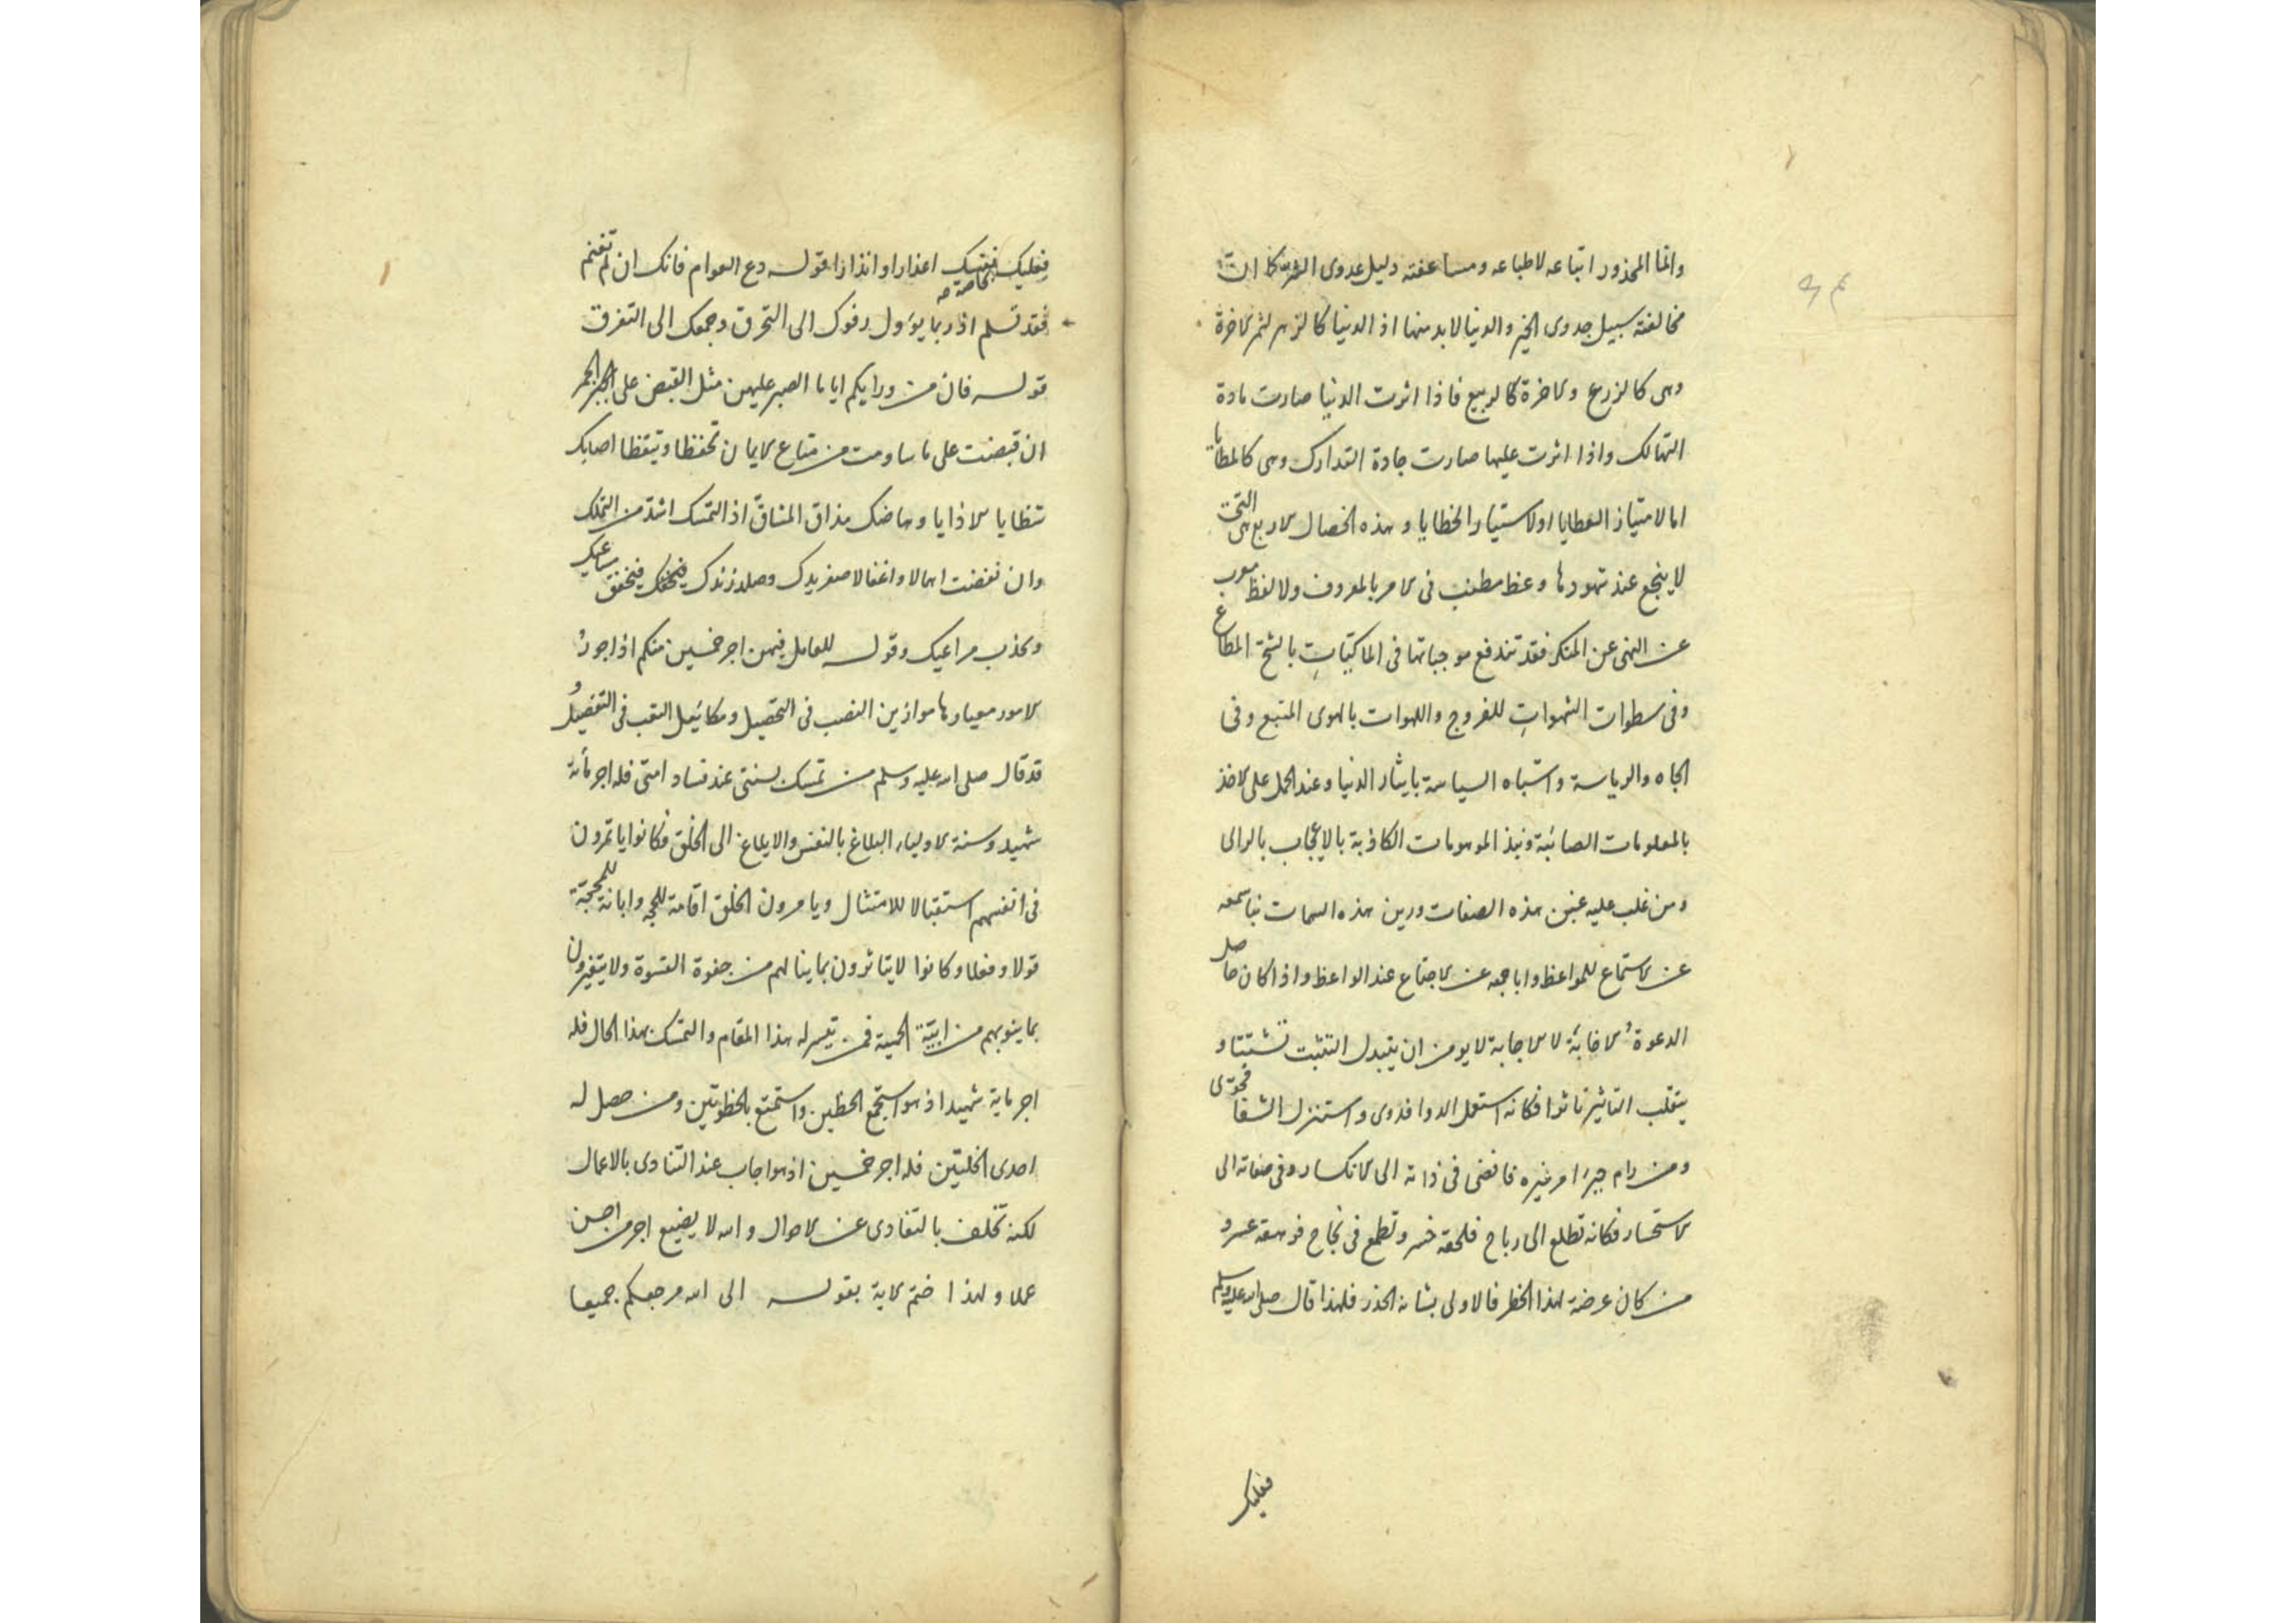 وانما المحذور اتباعه لاطباعه ومساعفته دليل عدوى الشر كما ان
مخالفته سبيل جدوى الخير والدنيا لابد منها اذ الدنيا كالزهر لثمر الاخرة
وهى كالزرع والاخرة كالربيع فاذا اثرت الدنيا صارت مادة
التهالك واذا اثرت عليها صارت جادة التدارك وهى كالمطايا
اما لامتياز العطايا او لاستيار الخطايا وهذه الخصال الاربع التى هى
لا ينجع عند شهودها وعظ مطنب فى الامر بالمعروف ولا لفظ معرب
عن النهى عن المنكر فقد تندفع موجباتها فى الماكتيات بالشح المطاع
وفى سطوات الشهوات للفروج واللهوات بالهوى المتبع وفى
الجاه والرياسة واشتباه السياسة بايثار الدنيا وعند الحمل على الاخذ
بالمعلومات الصائبة ونبذ الموهومات الكاذبة بالاعجاب بالراى
ومن غلب عليه غبن هذه الصفات ورين هذه السمات نبا سمعه
عن الاستماع للمواعظ وابا جمعه عن الاجتماع عند الواعظ واذا كان حاصل
الدعوة الاخابة لا الاجابة لا يومن ان يتبدل التثبت تشتتا و
يتقلب التاثير تاثرا فكانه استعمل الدوا فدوى واستنزل الشفا فحوى
ومن رام جبر امر غيره فافضى فى ذاته الى الانكسار وفى صفاته الى
الاستحسار فكانه تطلع الى رباح فلحقه خسر وتطمع فى نجاح فرهقه عسر و
من كان عرضة لهذا الخطر فالاولى بشانه الحذر فلهذا قال صلى الله عليه وسلم
فعليك
فعليك بخاصة نفسك اعذارا وانذارا قوله دع العوام فانك ان لم تغنم
فقد تسلم اذ ربما يؤول رفوك الى التخرق وجمعك الى التفرق
قوله فان من ورايكم اياما الصبر عليهن مثل القبض على الجمر
ان قبضت على ما ساومت من متاع الايمان تحفظا وتيقظا اصابك
شظايا الاذايا وهاضك مذاق المشاق اذ التمسك اشد من التملك
وان نفضت اهمالا واغفالا صفر يدك وصلد زندك فيخفق مساعيك
وتكذب مراعيك وقوله للعامل فيهن اجر خمسين منكم اذ اجور
الامور معيارها موازين النصب فى التحصيل ومكائيل التعب فى التفصيل و
قد قال صلى الله عليه وسلم من تمسك بسنتى عند فساد امتى فله اجر مائة
شهيد وسنة الاولياء البلاغ بالنفس والابلاغ الى الخلق فكانوا ياتمرون
فى انفسهم استقبالا للامتثال ويامرون الخلق اقامة للحجة وابانة للمحجة
قولا وفعلا وكانوا لا يتاثرون بما ينالهم من جفوة القسوة ولا يتغيرون
بما ينوبهم من ابية الحمية فمن تيسر له هذا المقام والتمسك بهذا الحال فله
اجر ماية شهيد اذ هو استجمع الحظين واستمتع بالحظوتين ومن حصل له
احدى الخلتين فله اجر خمسين اذ هو اجاب عند التنادى بالاعمال
لكنه تخلف بالتفادى عن الاحوال والله لا يضيع اجر من احسن
عملا ولهذا ختم الاية بقوله الى الله مرجعكم جميعا